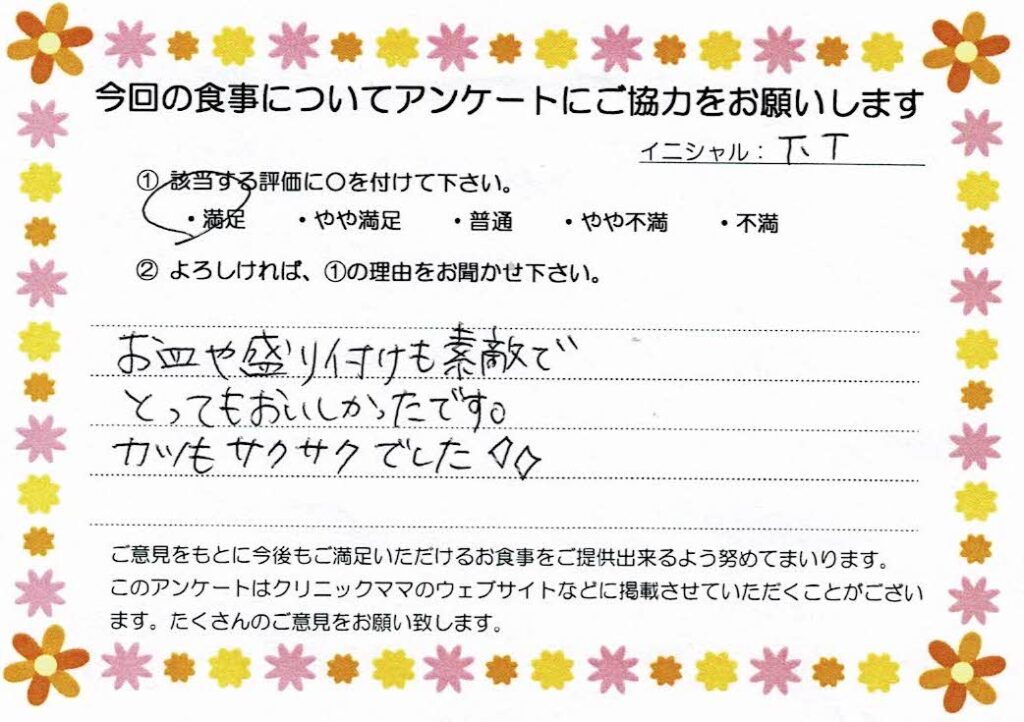 今回の食事についてアンケートにご協力をお願いします
イニシャル： T.T
① 該当する評価に〇を付けて下さい。
・満足 ・やや満足 ・普通 ・やや不満 ・不満
② よろしければ、①の理由をお聞かせ下さい。
お皿や盛り付けも素敵で
とってもおいしかったです。
カツもサクサクでした◇◇
ご意見をもとに今後もご満足いただけるお食事をご提供出来るよう努めてまいります。
このアンケートはクリニックママのウェブサイトなどに掲載させていただくことがござい
ます。たくさんのご意見をお願い致します。